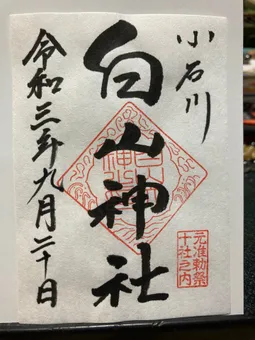 小石川
白山神社
令和三年九月二十日
元准勅祭
十社之内